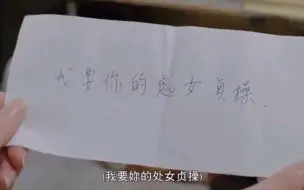 我要你的處女貞操.
(我要妳的处女贞操)